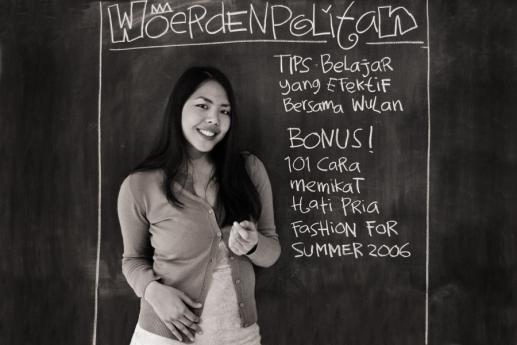 WOERDENPOLITAN
TIPS BELAJAR
yang EFEKTIF
BERSAMA WULAN
BONUS!
101 CARA
memikaT
Hati PRIA
FASHION FOR
SUMMER 2006